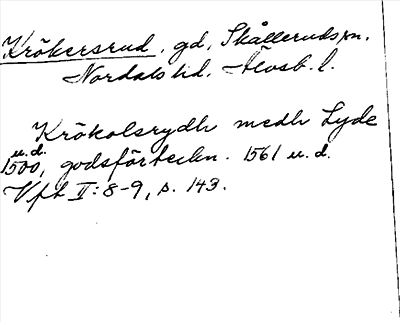 Krökersrud, gd, Skållerudssn.
Nordals hd. Älvsb. l.
Krökolsrydh medh Lyde
1500, u.d. godsförteckn. 1561 u.d.
Vft II: 8-9, s. 143.